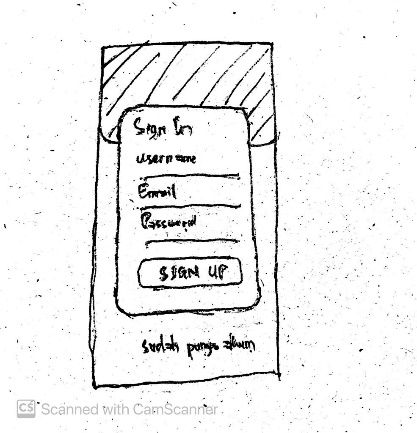 Sign In
username
Email
Password
SIGN UP
sudah punya akun
CS Scanned with CamScanner